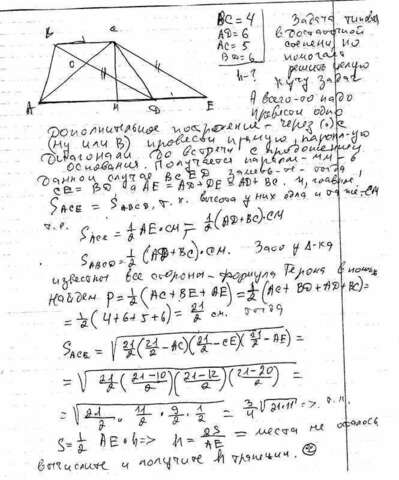 B C
O
A M D E
BC = 4
AD = 6
AC = 5
BD = 6
h - ?
Задача типовая
в достаточной
степени, но
помогает
решить целую
кучу задач
А всего-то надо
провести одно
Дополнительное построение - через (·) C
(ну или B) провести прямую, паралл-ую
диагонали до встречи с продолжением
основания. Получается паралл-мм - в
данном случае BCED
CE = BD, а AE = AD + DE = AD + BC. И, главное,
S_ACE = S_ABCD, т. к. высота у них одна и та же - CM
т. е. S_ACE = 1/2 AE · CM = 1/2 (AD + BC) · CM
S_ABCD = 1/2 (AD + BC) · CM. Зато у Δ-ка
известны все стороны - формула Герона в помощь
Найдём P = 1/2 (AC + BE + AE) = 1/2 (AC + BD + AD + BC) =
= 1/2 (4 + 6 + 5 + 6) = 21/2 см. тогда
S_ACE = √(21/2 (21/2 - AC)(21/2 - CE)(21/2 - AE)) =
= √(21/2 ((21 - 10)/2)((21 - 12)/2)((21 - 20)/2)) =
= √(21/2 · 11/2 · 9/2 · 1/2) = 3/4 √(21·11) => т. к.
S = 1/2 AE · h => h = 2S/AE = места не осталось
вычислите и получите h трапеции.